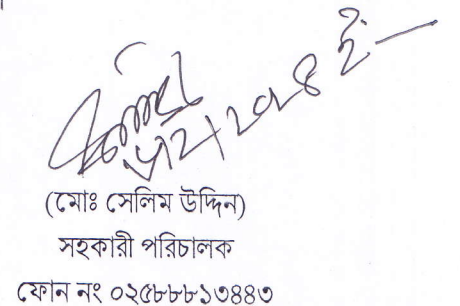 (মোঃ সেলিম উদ্দিন)
সহকারী পরিচালক
ফোন নং ০২৫৮৮৮১৩৪৪৩